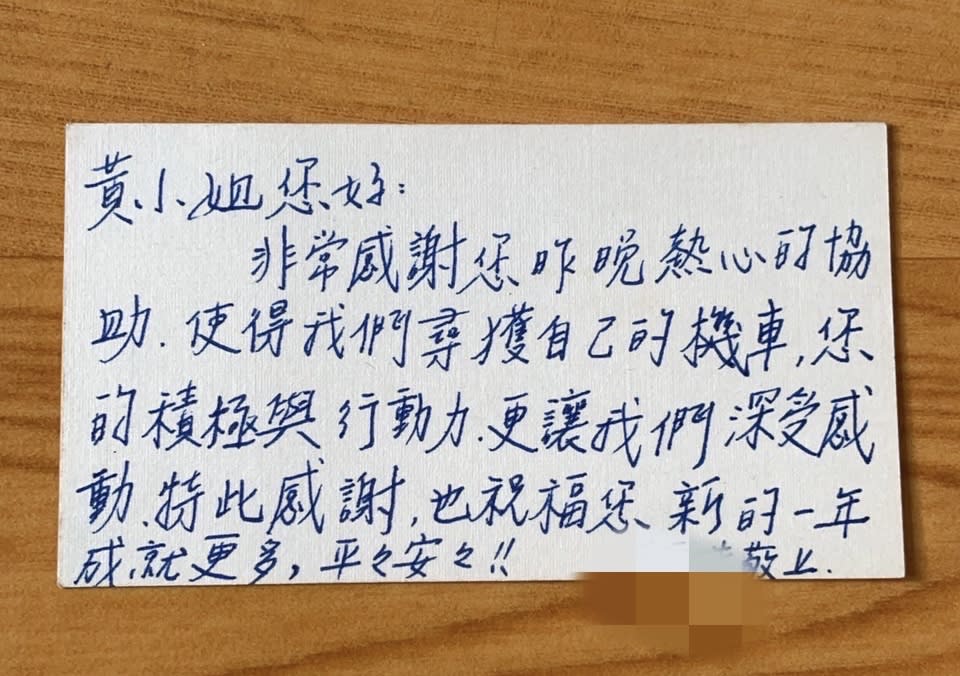 黃小姐您好:
非常感謝您昨晚熱心的協
助.使得我們尋獲自己的機車,您
的積極與行動力.更讓我們深受感
動.特此感謝,也祝福您新的一年
成就更多,平々安々!!
敬上.